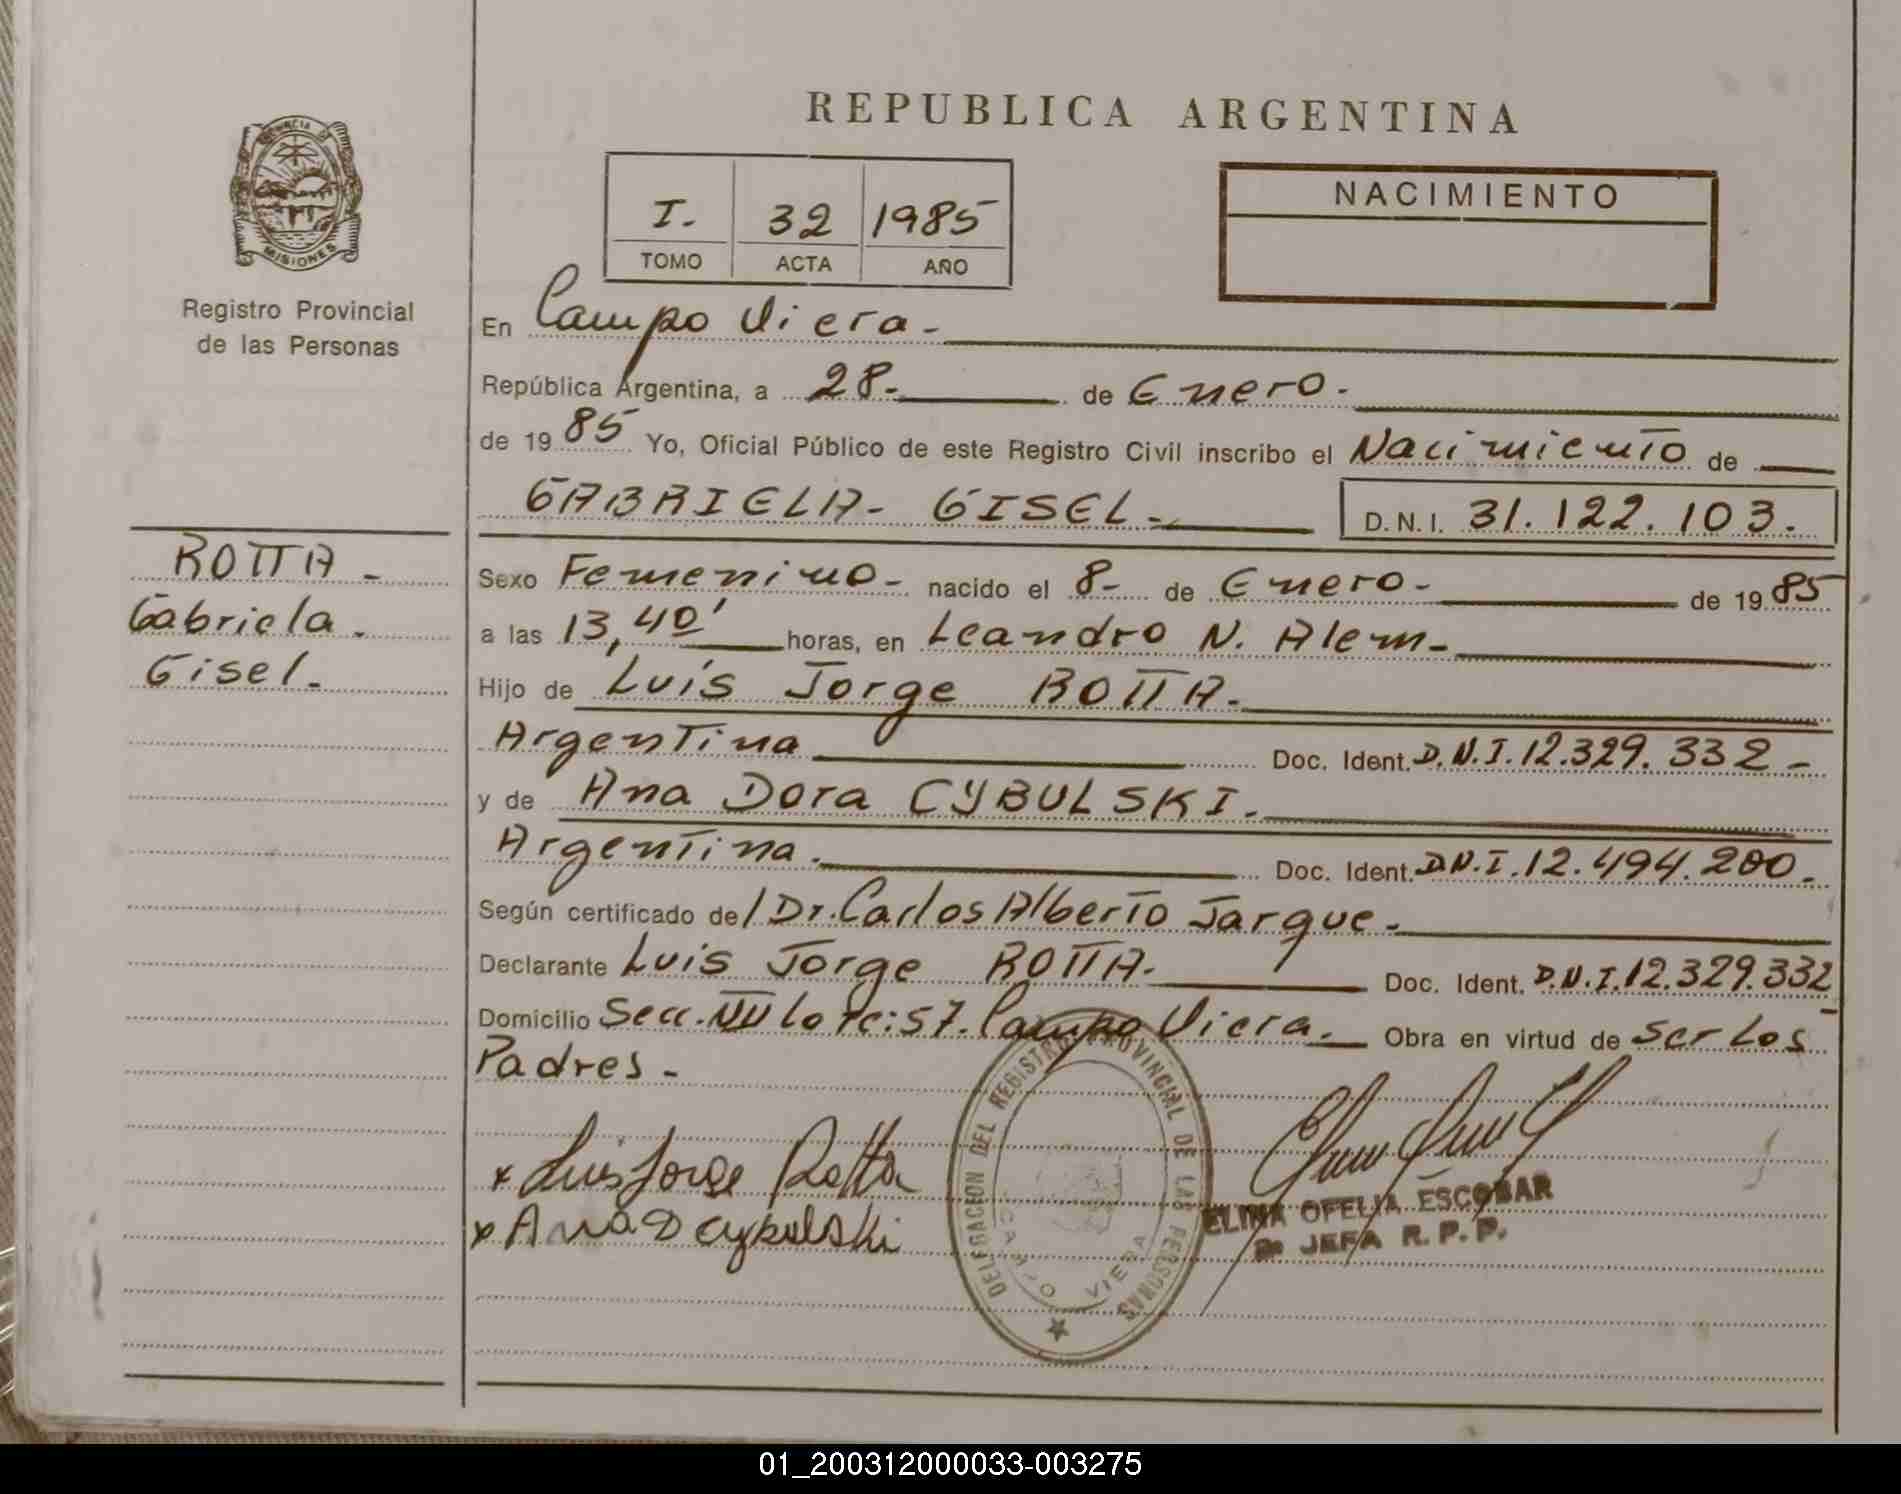 REPUBLICA ARGENTINA
PROVINCIA DE
MISIONES
Registro Provincial
de las Personas
I. 32 1985
TOMO ACTA AÑO
NACIMIENTO
En Campo Viera.
República Argentina, a 28. de Enero.
de 1985 Yo, Oficial Público de este Registro Civil inscribo el Nacimiento de
GABRIELA - GISEL. D.N.I. 31.122.103.
ROTTA.
Gabriela.
Gisel.
Sexo Femenino - nacido el 8 - de Enero - de 1985
a las 13,40' horas, en Leandro N. Alem.
Hijo de Luís Jorge ROTTA.
Argentina Doc. Ident. D.N.I. 12.329.332 -
y de Ana Dora CYBULSKI.
Argentina. Doc. Ident. D.N.I. 12.494.200.
Según certificado del Dr. Carlos Alberto Jarque.
Declarante Luis Jorge ROTTA. Doc. Ident. D.N.I. 12.329.332 -
Domicilio Secc. Lote: 57. Campo Viera. Obra en virtud de ser Los
Padres -
x Luis Jorge Rotta
x Ana D Cybulski
DELEGACION DEL REGISTRO PROVINCIAL DE LAS PERSONAS
CAMPO VIERA
ELINA OFELIA ESCOBAR
JEFA R. P. P.
01_200312000033-003275